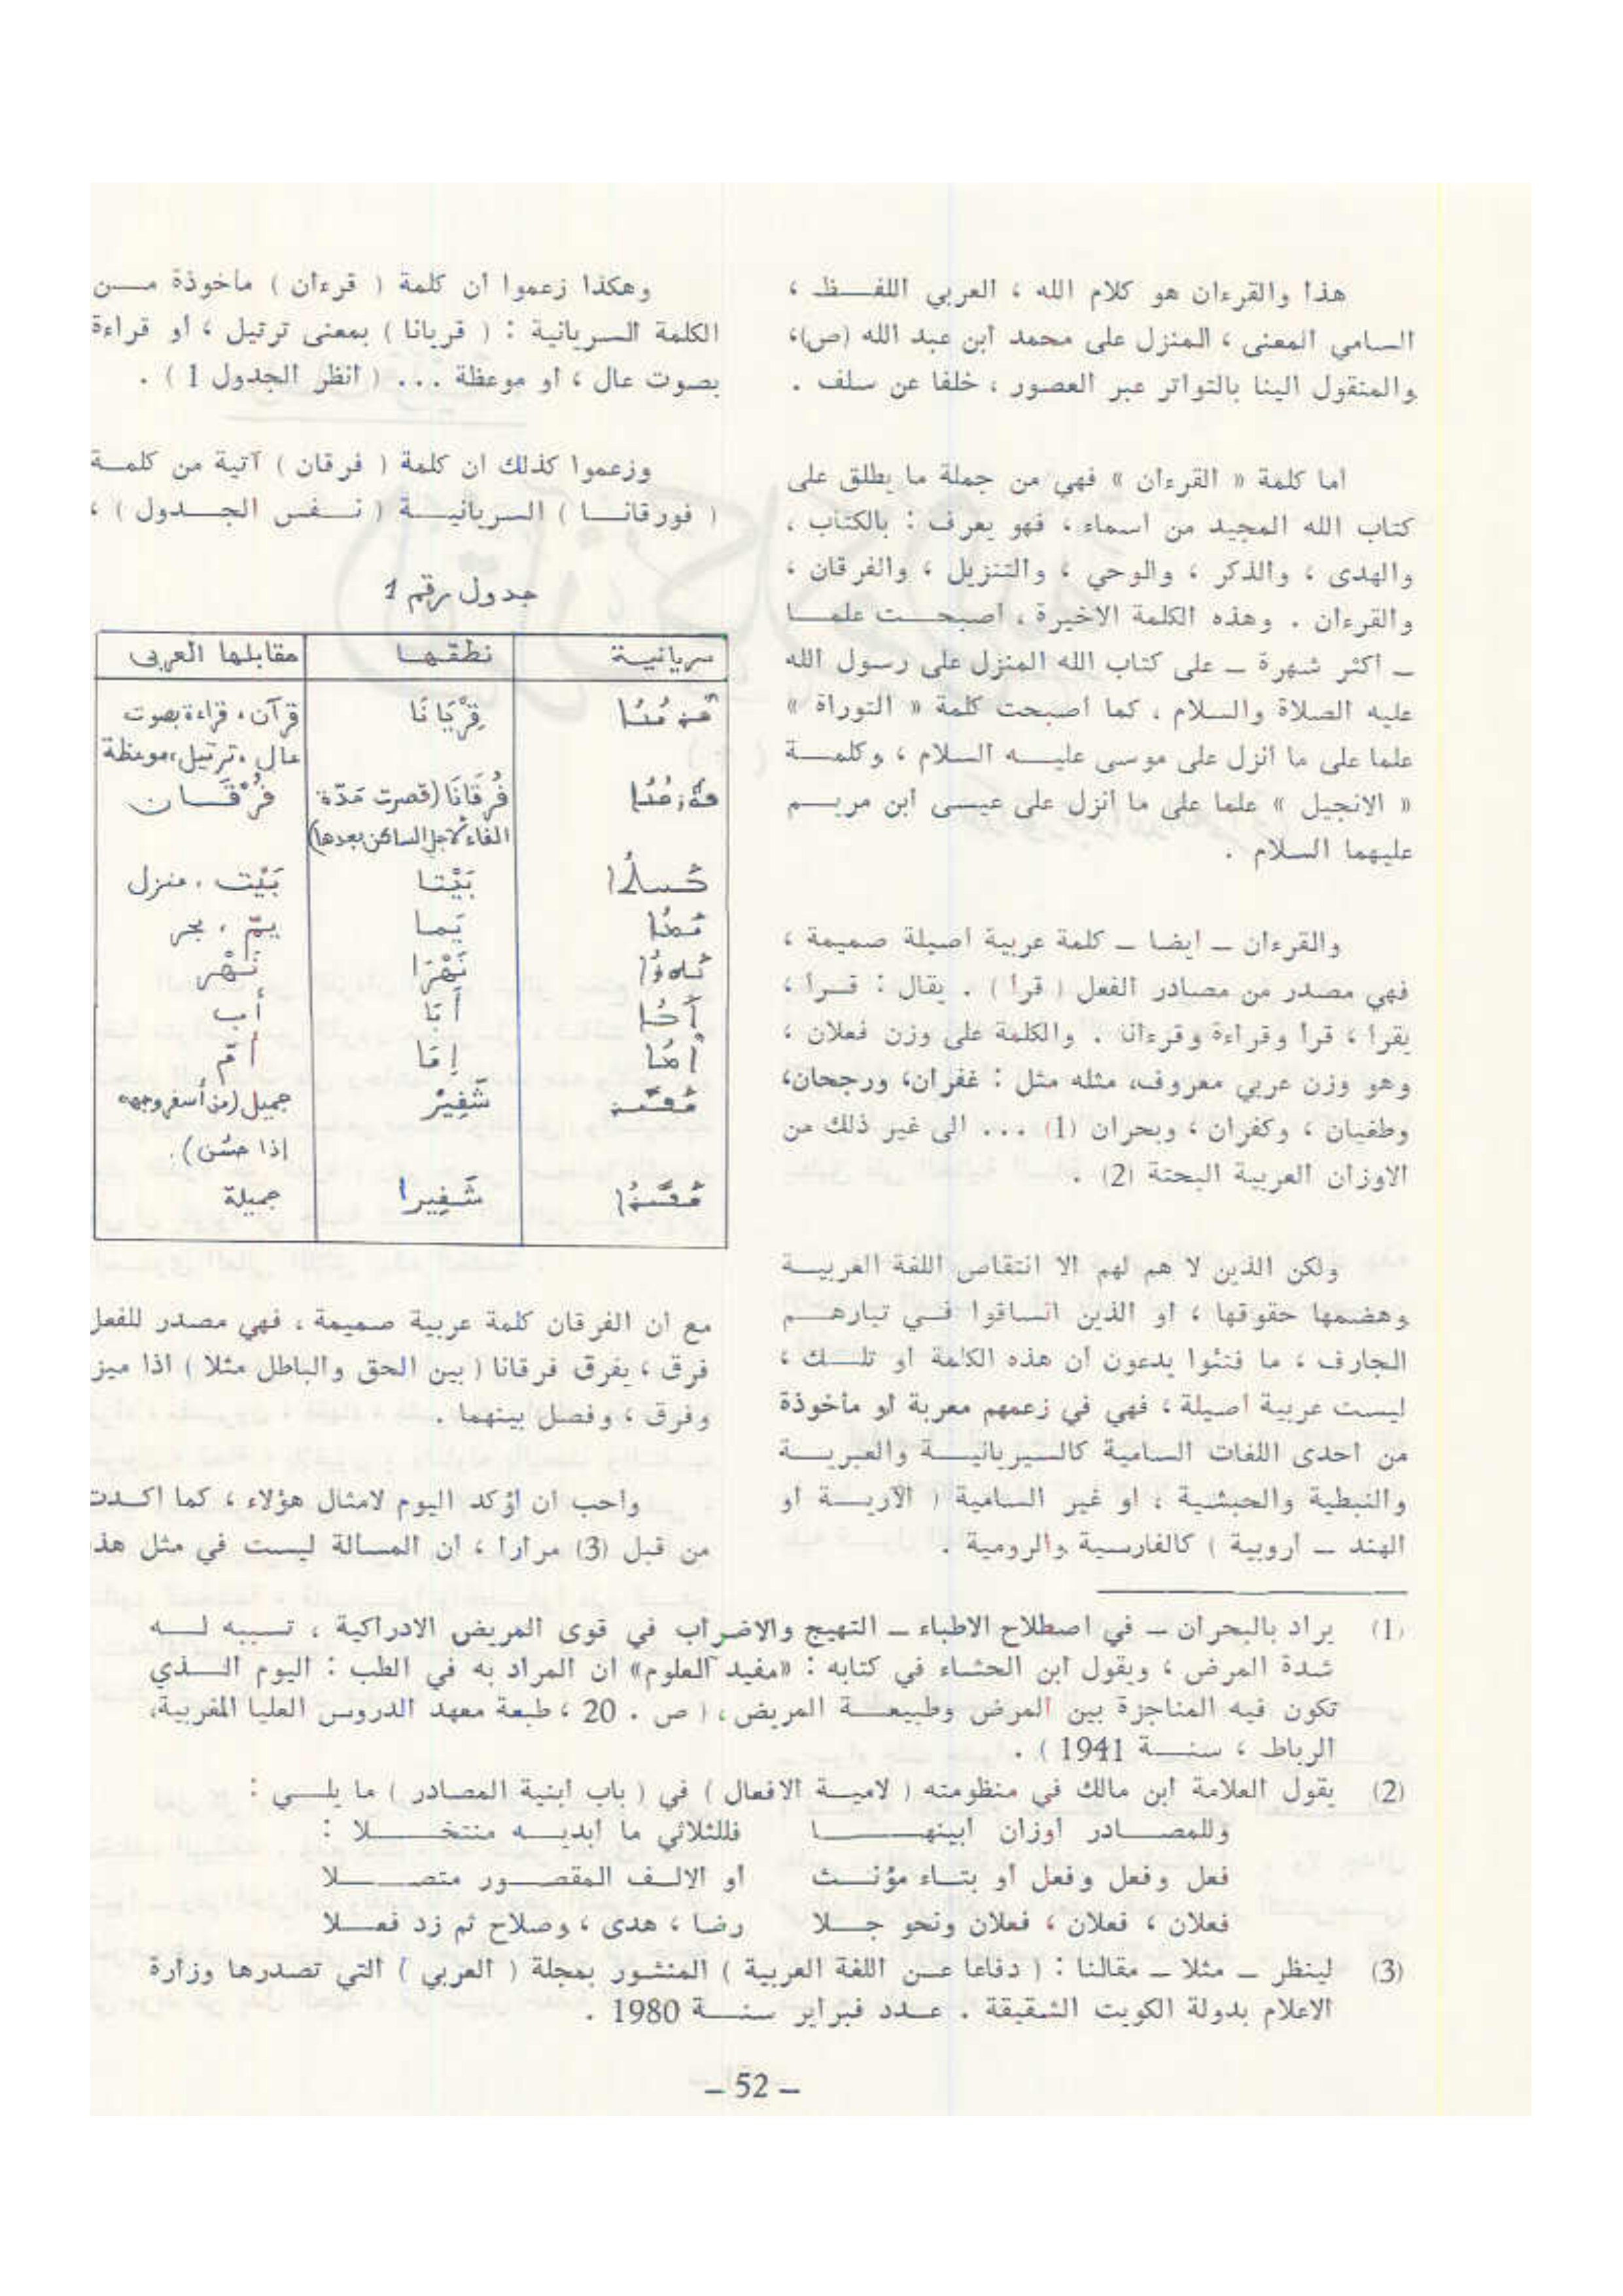 هذا والقرءان هو كلام الله ، العربي اللفــظ ،
السامي المعنى ، المنزل على محمد ابن عبد الله (ص)،
والمنقول الينا بالتواتر عبر العصور ، خلفا عن سلف .
اما كلمة « القرءان » فهي من جملة ما يطلق على
كتاب الله المجيد من اسماء ، فهو يعرف : بالكتاب ،
والهدى ، والذكر ، والوحي ، والتنزيل ، والفرقان ،
والقرءان . وهذه الكلمة الاخيرة ، اصبحــت علمــا
ـ اكثر شهرة ـ على كتاب الله المنزل على رسول الله
عليه الصلاة والسلام ، كما اصبحت كلمة « التوراة »
علما على ما انزل على موسى عليــه السلام ، وكلمــة
« الانجيل » علما على ما انزل على عيسى ابن مريــم
عليهما السلام .
والقرءان ـ ايضا ـ كلمة عربية اصيلة صميمة ،
فهي مصدر من مصادر الفعل ( قرأ ) . يقال : قــرأ ،
يقرأ ، قرأ وقراءة وقرءانا . والكلمة على وزن فعلان ،
وهو وزن عربي معروف، مثله مثل : غفران، ورجحان،
وطغيان ، وكفران ، وبحران (1) ... الى غير ذلك من
الاوزان العربية البحتة (2) .
ولكن الذين لا هم لهم الا انتقاص اللغة العربيــة
وهضمها حقوقها ، او الذين انساقوا فــي تيارهــم
الجارف ، ما فتئوا يدعون ان هذه الكلمة او تلــك ،
ليست عربية اصيلة ، فهي في زعمهم معربة او مأخوذة
من احدى اللغات السامية كالسيريانيــة والعبريــة
والنبطية والحبشية ، او غير السامية ( الآريــة او
الهند ـ أروبية ) كالفارسية والرومية .
وهكذا زعموا ان كلمة ( قرءان ) مأخوذة مــن
الكلمة السريانية : ( قريانا ) بمعنى ترتيل ، أو قراءة
بصوت عال ، أو موعظة ... ( انظر الجدول 1 ) .
وزعموا كذلك ان كلمة ( فرقان ) آتية من كلمــة
( فورقانــا ) السريانيــة ( نــفس الجــدول ) ،
جدول رقم 1
سريانية | نطقها | مقابلها العربي
ܩܶܪܝܳܢܳܐ | قِرْيَانَا | قرآن، قراءة بصوت
عال، ترتيل، موعظة
ܦܽܘܪܩܳܢܳܐ | فُرقَانَا (قصرت مَدّة | فُرْقــان
الفاء لأجل الساكن بعدها)
ܒܰܝܬܳܐ | بَيْتا | بَيْت ، منزل
ܝܰܡܳܐ | يَما | يمّ ، بحر
ܢܰܗܪܳܐ | نَهْرَا | نَهْر
ܐܰܒܳܐ | أَبَا | أب
ܐܶܡܳܐ | إِمَا | أمّ
ܫܰܦܺܝܪ | شَفِيرْ | جميل (من أسفر وجهه
إذا حسُن).
ܫܰܦܺܝܪܳܐ | شَفِيرا | جميلة
مع ان الفرقان كلمة عربية صميمة ، فهي مصدر للفعل
فرق ، يفرق فرقانا ( بين الحق والباطل مثلا ) اذا ميز
وفرق ، وفصل بينهما .
وأحب ان أؤكد اليوم لامثال هؤلاء ، كما اكــدت
من قبل (3) مرارا ، ان المسألة ليست في مثل هذ
(1) يراد بالبحران ـ في اصطلاح الاطباء ـ التهيج والاضراب في قوى المريض الادراكية ، تسببه لــه
شدة المرض ، ويقول ابن الحشاء في كتابه : «مفيد العلوم» ان المراد به في الطب : اليوم الــذي
تكون فيه المناجزة بين المرض وطبيعــة المريض، ( ص . 20 ، طبعة معهد الدروس العليا المغربية،
الرباط ، سنــة 1941 ) .
(2) يقول العلامة ابن مالك في منظومته ( لاميــة الافعال ) في ( باب ابنية المصادر ) ما يلــي :
وللمصــادر أوزان أبينهــا فللثلاثي ما أبديــه منتخــلا :
فعل وفعل وفعل أو بتــاء مؤنــث أو الالــف المقصــور متصــلا
فعلان ، فعلان ، فعلان ونحو جــلا رضا ، هدى ، وصلاح ثم زد فعــلا
(3) لينظر ـ مثلا ـ مقالنا : ( دفاعا عــن اللغة العربية ) المنشور بمجلة ( العربي ) التي تصدرها وزارة
الاعلام بدولة الكويت الشقيقة . عــدد فبراير سنــة 1980 .
ـ 52 ـ